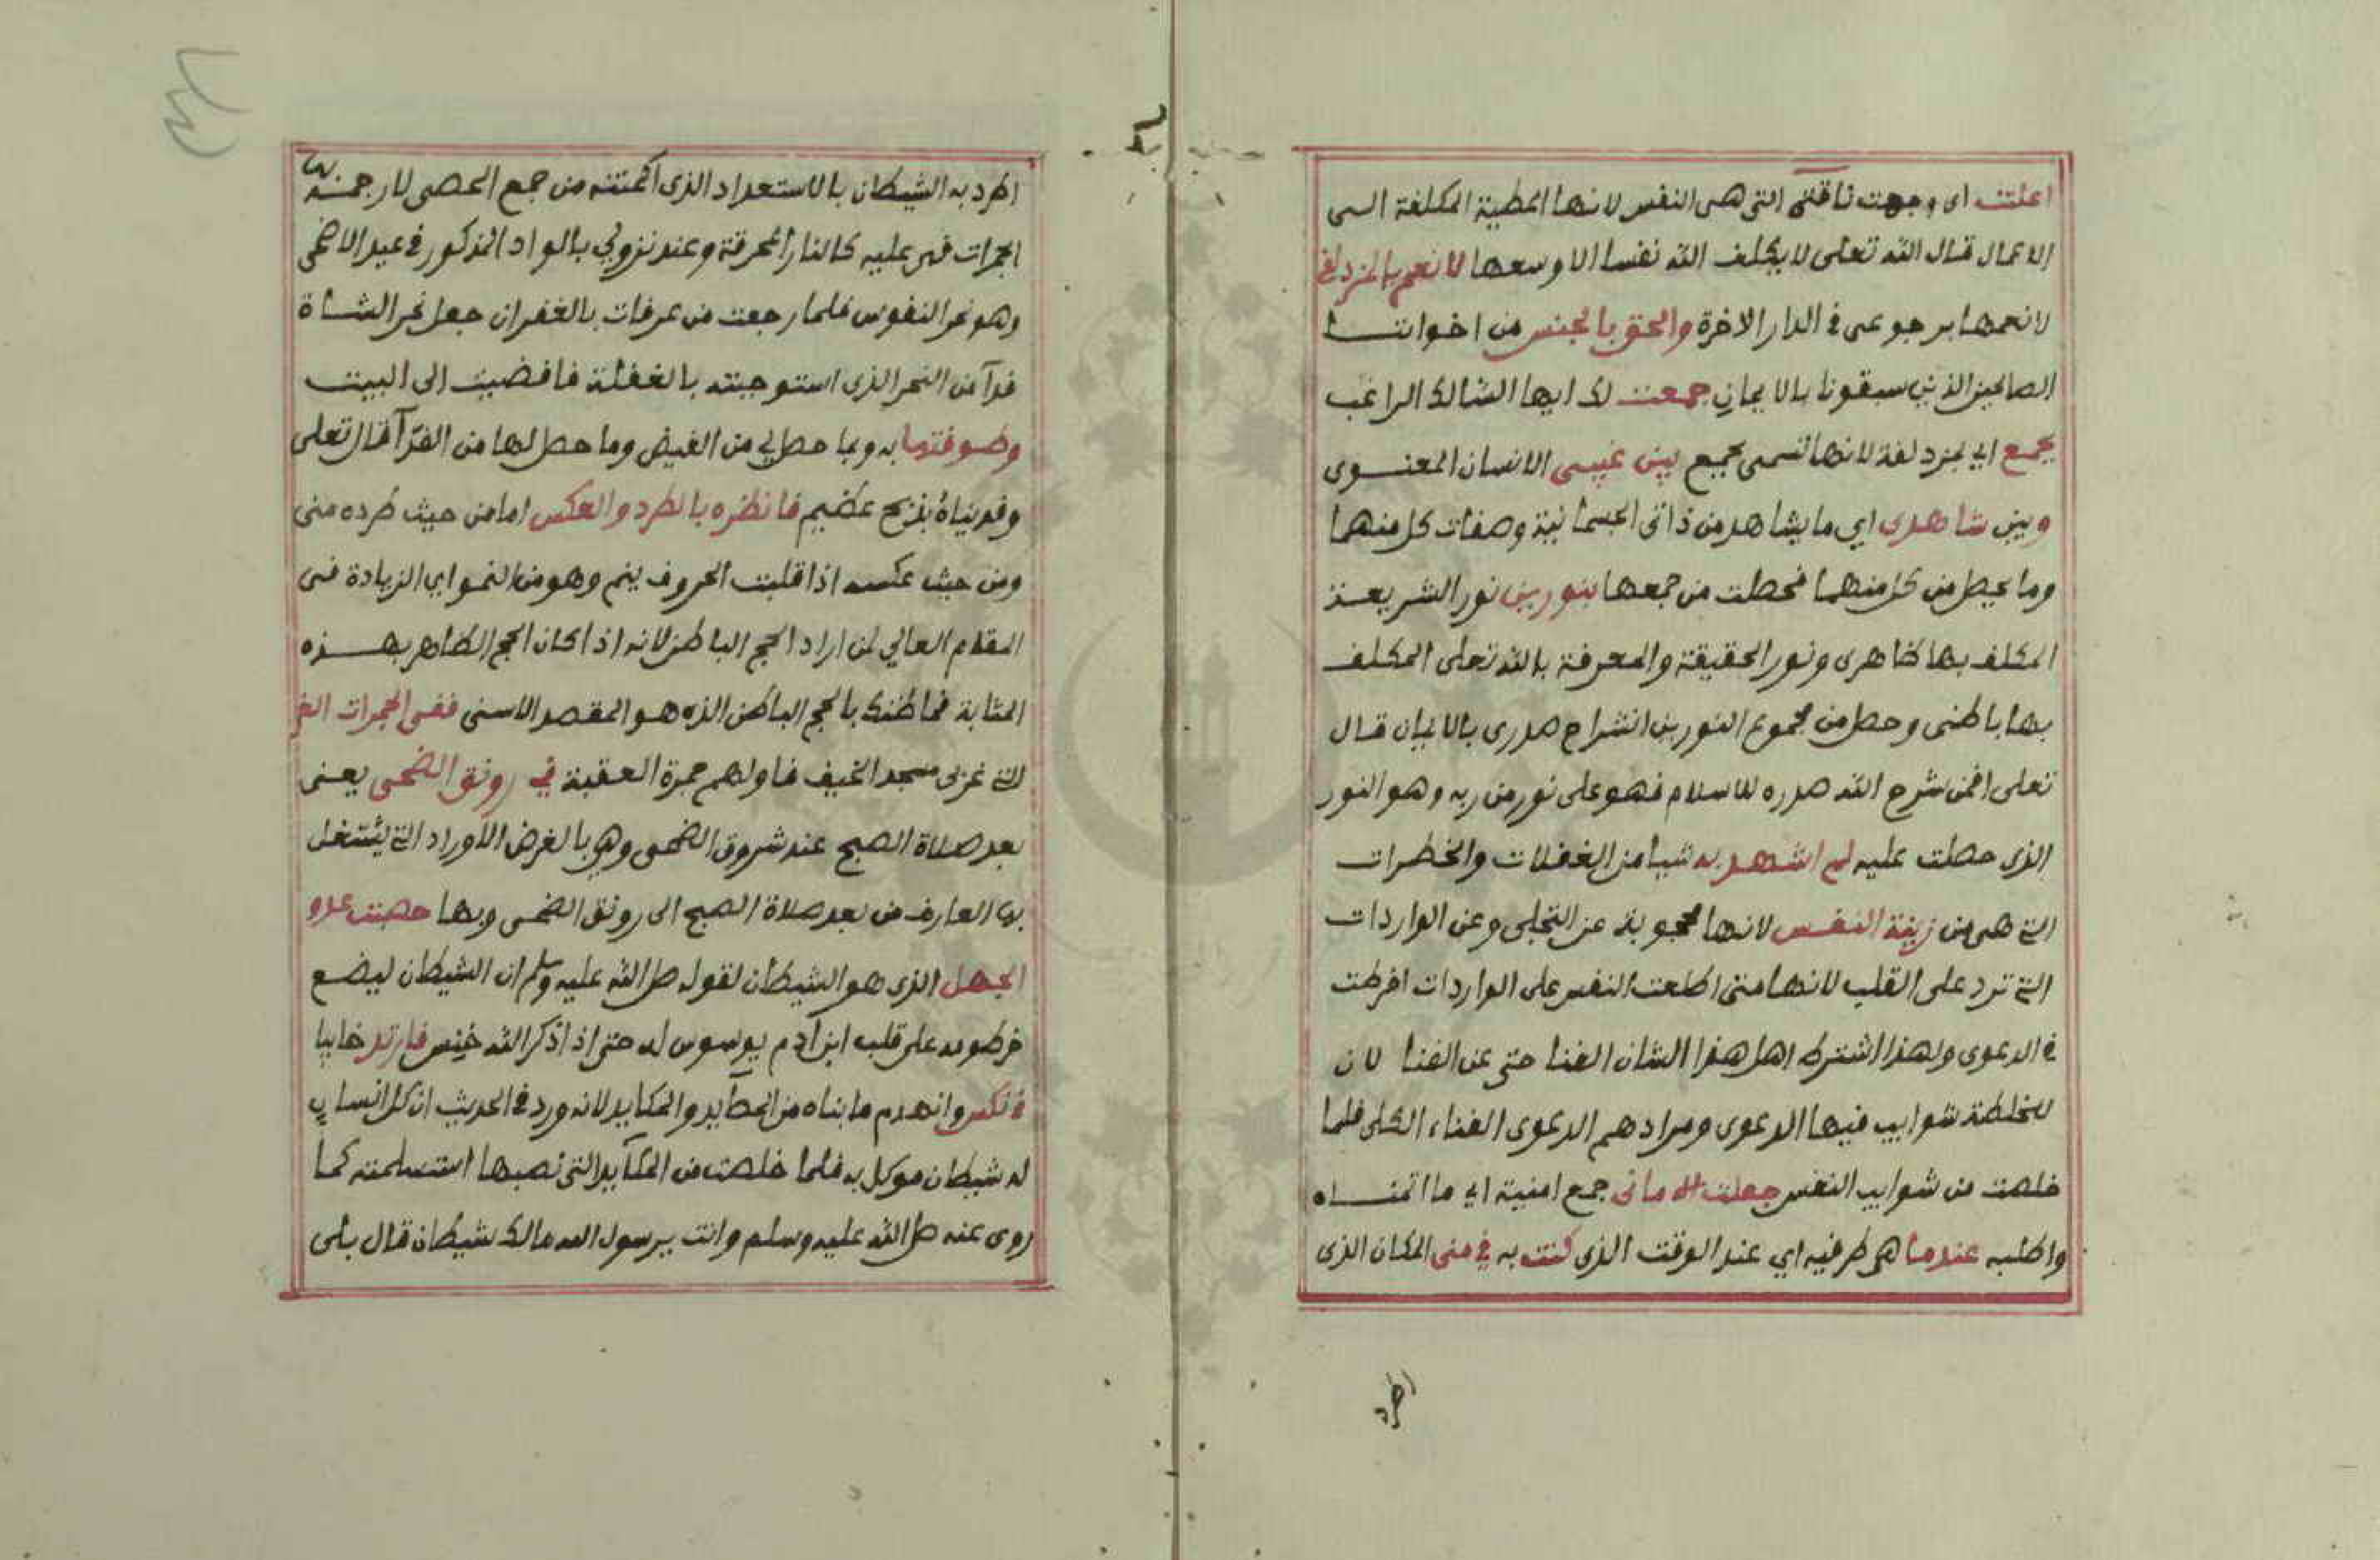 اعلتت اى وجهت ناقتى التى هى النفس لانها المطية المكلفة الى
الاعمال قال الله تعلى لا يكلف الله نفسا الا وسعها لانعم بالمزدلفى
لانعمها برجوعى فى الدار الاخرة والحق بالجنس من اخواننا
الصالحين الذين سبقونا بالايمان جمعت لك ايها السالك الراغب
بجمع اي بمزدلفة لانها تسمى بجمع بين غيبى الانسان المعنوى
وبين شاهدى اي ما يشاهد من ذاتى الجسمانية وصفات كل منهما
وما يحصل من كل منهما فحصلت من جمعها بنورين نور الشريعة
المكلف بها ظاهرى ونور الحقيقة والمعرفة بالله تعلى المكلف
بها باطنى وحصل من مجموع النورين انشراح صدرى بالايمان قال
تعلى افمن شرح الله صدره للاسلام فهو على نور من ربه وهو النور
الذى حصلت عليه لم اشهد به شيا من الغفلات والخطرات
التي هى من زيغة النفس لانها محجوبة عن التجلى وعن الواردات
التي ترد على القلب لانها متى اطلعت النفس على الواردات افرطت
في الدعوى ولهذا اشترط اهل هذا الشان الفنا حتى عن الفنا لان
للخلطة شوايب فيها الدعوى ومرادهم الدعوى الفناء الكلى فلما
خلصت من شوايب النفس جعلت الامانى جمع امنية اي ما اتمناه
واطلبه عندما هى ظرفيه اي عند الوقت الذى كنت به في منى المكان الذى
اطرد
اطرد به الشيطان بالاستعداد الذى اكمتته من جمع الحصى لارجمنه بها
الجمرات فهى عليه كالنار المحرقة وعند نزولي بالواد المذكور في عيد الاضحى
وهو نحر النفوس فلما رجعت من عرفات بالغفران جعل نحر الشاة
فدآ من النحر الذى استوجبته بالغفلة فافضيت الى البيت
وطوفتها به وبما حصل لي من الفيض وما حصل لها من الفدآ قال تعلى
وفديناه بذبح عظيم فانظره بالطرد والعكس اما من حيث طرده منى
ومن حيث عكسه اذا قلبت الحروف ينم وهو من النمو اي الزيادة فى
المقام العالي لمن اراد الحج الباطن لانه اذا كان الحج الظاهر بهذه
المثابة فما ظنك بالحج الباطن الذى هو المقصد الاسنى ففى الجمرات الغر
التي غربى مسجد الخيف فاولهم جمرة العقبة في رونق الضحى يعنى
بعد صلاة الصبح عند شروق الضحى وهي بالغرض الاوراد التي يشتغل
بها العارف من بعد صلاة الصبح الى رونق الضحى وبها حصبت عدو
الجهل الذى هو الشيطان لقوله صلى الله عليه وسلم ان الشيطان ليضع
خرطومه على قلب ابن آدم يوسوس له حتى اذا ذكر الله خنس فارتد خايبا
فانكس وانهدم ما بناه من المصايد والمكايد لانه ورد في الحديث ان كل انسان
له شيطان موكل به فلما خلصت من المكآيد التى نصبها استسلمته كما
روى عنه صلى الله عليه وسلم وانت يرسول الله مالك شيطان قال بلى